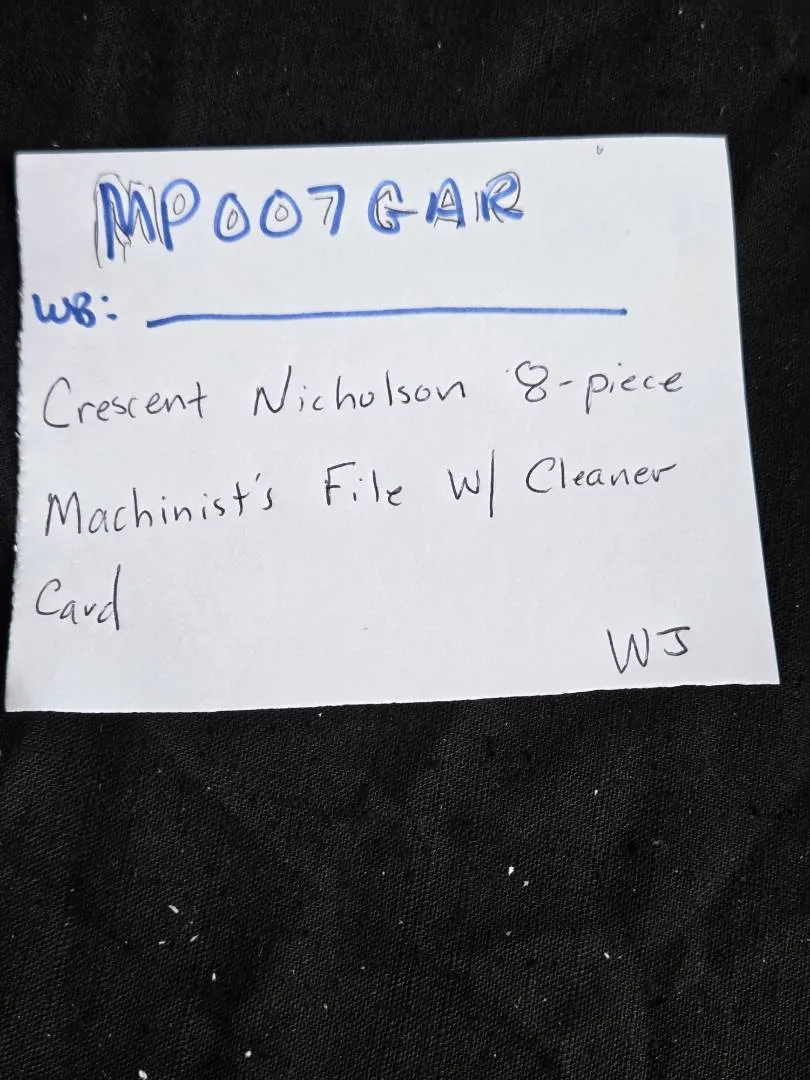 MP007GAR
WB:
Crescent Nicholson 8-piece
Machinist's File w/ Cleaner
Card
WJ